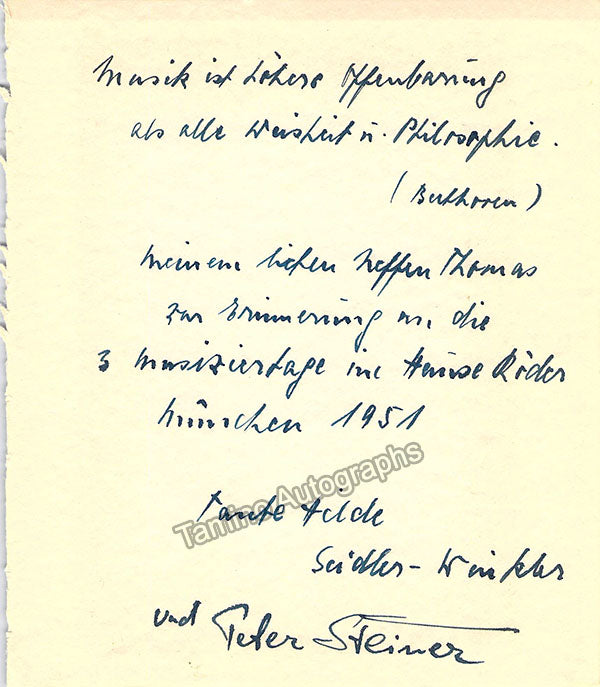 Musik ist höhere Offenbarung
als alle Weisheit u. Philosophie.
(Beethoven)
Meinem lieben Neffen Thomas
zur Erinnerung an die
3 Musiziertage im Hause Röder
München 1951
Tamino Autographs
Tante Hilde
Seidler-Winkler
und Peter Steiner